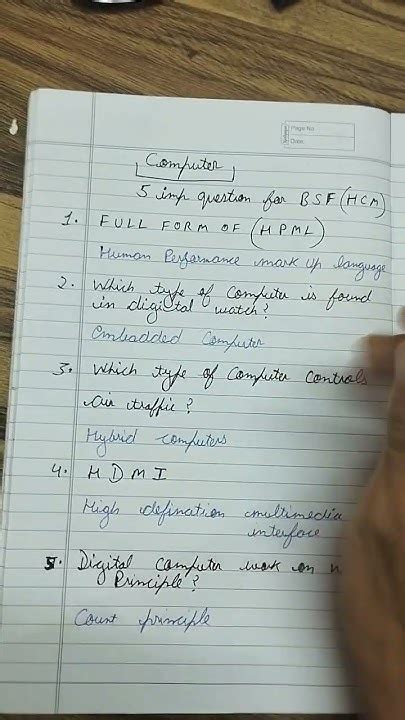 Page No.
Date
Computer
5 imp question for BSF (HCM)
1. FULL FORM OF (HPML)
Human Performance mark up language
2. Which type of Computer is found
in digital watch?
Embadded Computer
3. Which type of Computer Controls
air traffic?
Hybrid computers
4. HDMI
High defination multimedia
interface
5. Digital Computer work on
Principle?
Count principle